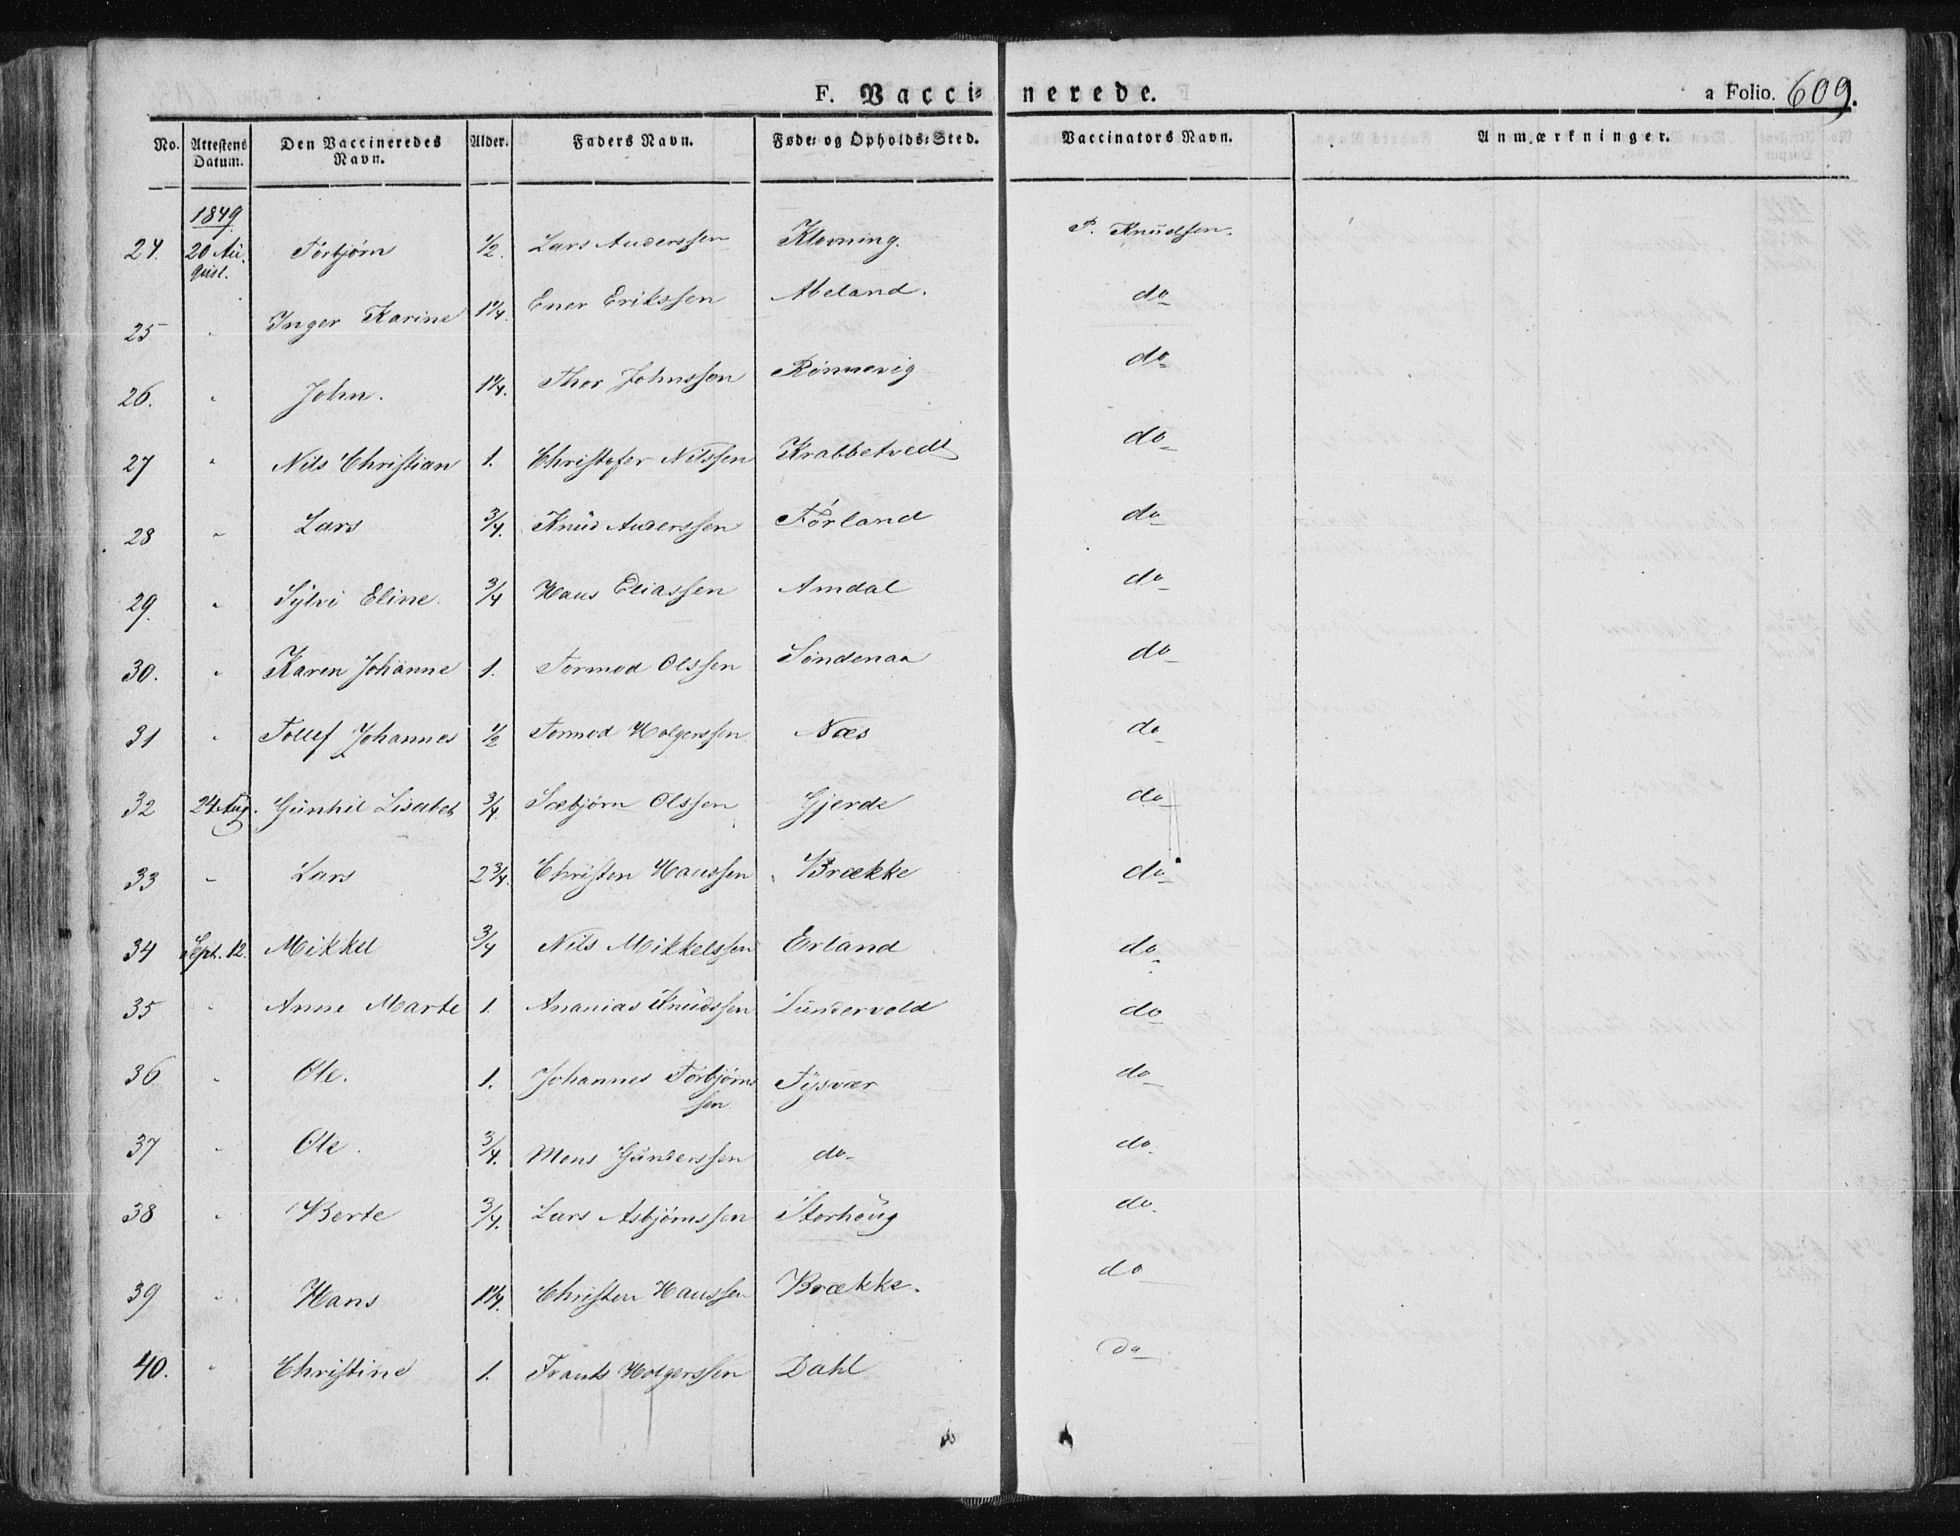 F. Vaccinerede. a Folio. 609.
No. Attestens Datum. Den Vaccineredes Navn. Alder. Faders Navn. Føde- og Opholds-Sted. Vaccinators Navn. Anmærkninger.
1849
24. 20 August. Torbjørn 1/2. Lars Anderssen Klovning. P. Knudsen.
25 " Inger Karine 1 1/4. Ener Erikssen Abeland. do
26. " John. 1 1/4. Thor Johnssen Rønnevig do
27 " Nils Christian 1. Christofer Nilssen Krabbetvedt do
28 " Lars 3/4. Knud Anderssen Førland do
29. " Sylvi Eline. 3/4 Hans Eliassen Amdal do
30. " Karen Johanne 1. Tormod Olssen Søndenaa do
31 " Tollef Johannes 1/2 Tormod Holgerssen Næs do
32 24 Aug. Gunhil Lisabet 3/4. Sæbjørn Olssen Gjerde do
33 " Lars 2 3/4. Christen Hanssen Brække do
34 Sept. 12. Mikkel 3/4 Nils Mikkelssen Erland do
35 " Anne Marte 1. Ananias Knudssen Lundervold do
36 " Ole. 1. Johannes Torbjørnssen Tysvær do
37 " Ole. 3/4. Mons Gunderssen do do
38 " Berte 3/4. Lars Asbjørnssen Storhoug do.
39 " Hans 1 1/4. Christen Hanssen Brække. do
40. " Christine 1. Frants Holgerssen Dahl do